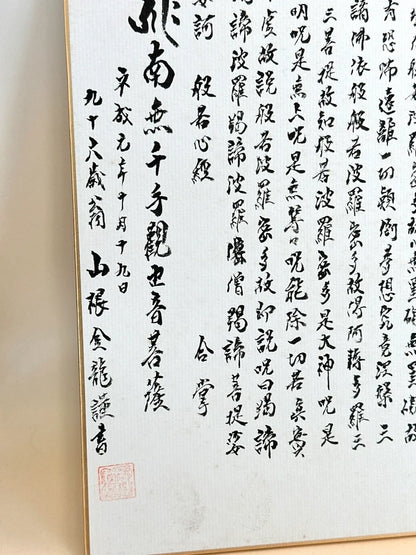 無罣礙無罣礙故
有恐怖遠離一切顛倒夢想究竟涅槃三
諸佛依般若波羅蜜多故得阿耨多羅三
三菩提故知般若波羅蜜多是大神呪是
明呪是無上呪是無等々呪能除一切苦真實
不虚故説般若波羅蜜多故即説呪曰羯諦
羯諦波羅羯諦波羅僧羯諦菩提娑
婆訶 般若心經 合掌
南無千手觀世音菩薩
平成元年十月十九日
九十六歳翁 山張金龍謹書